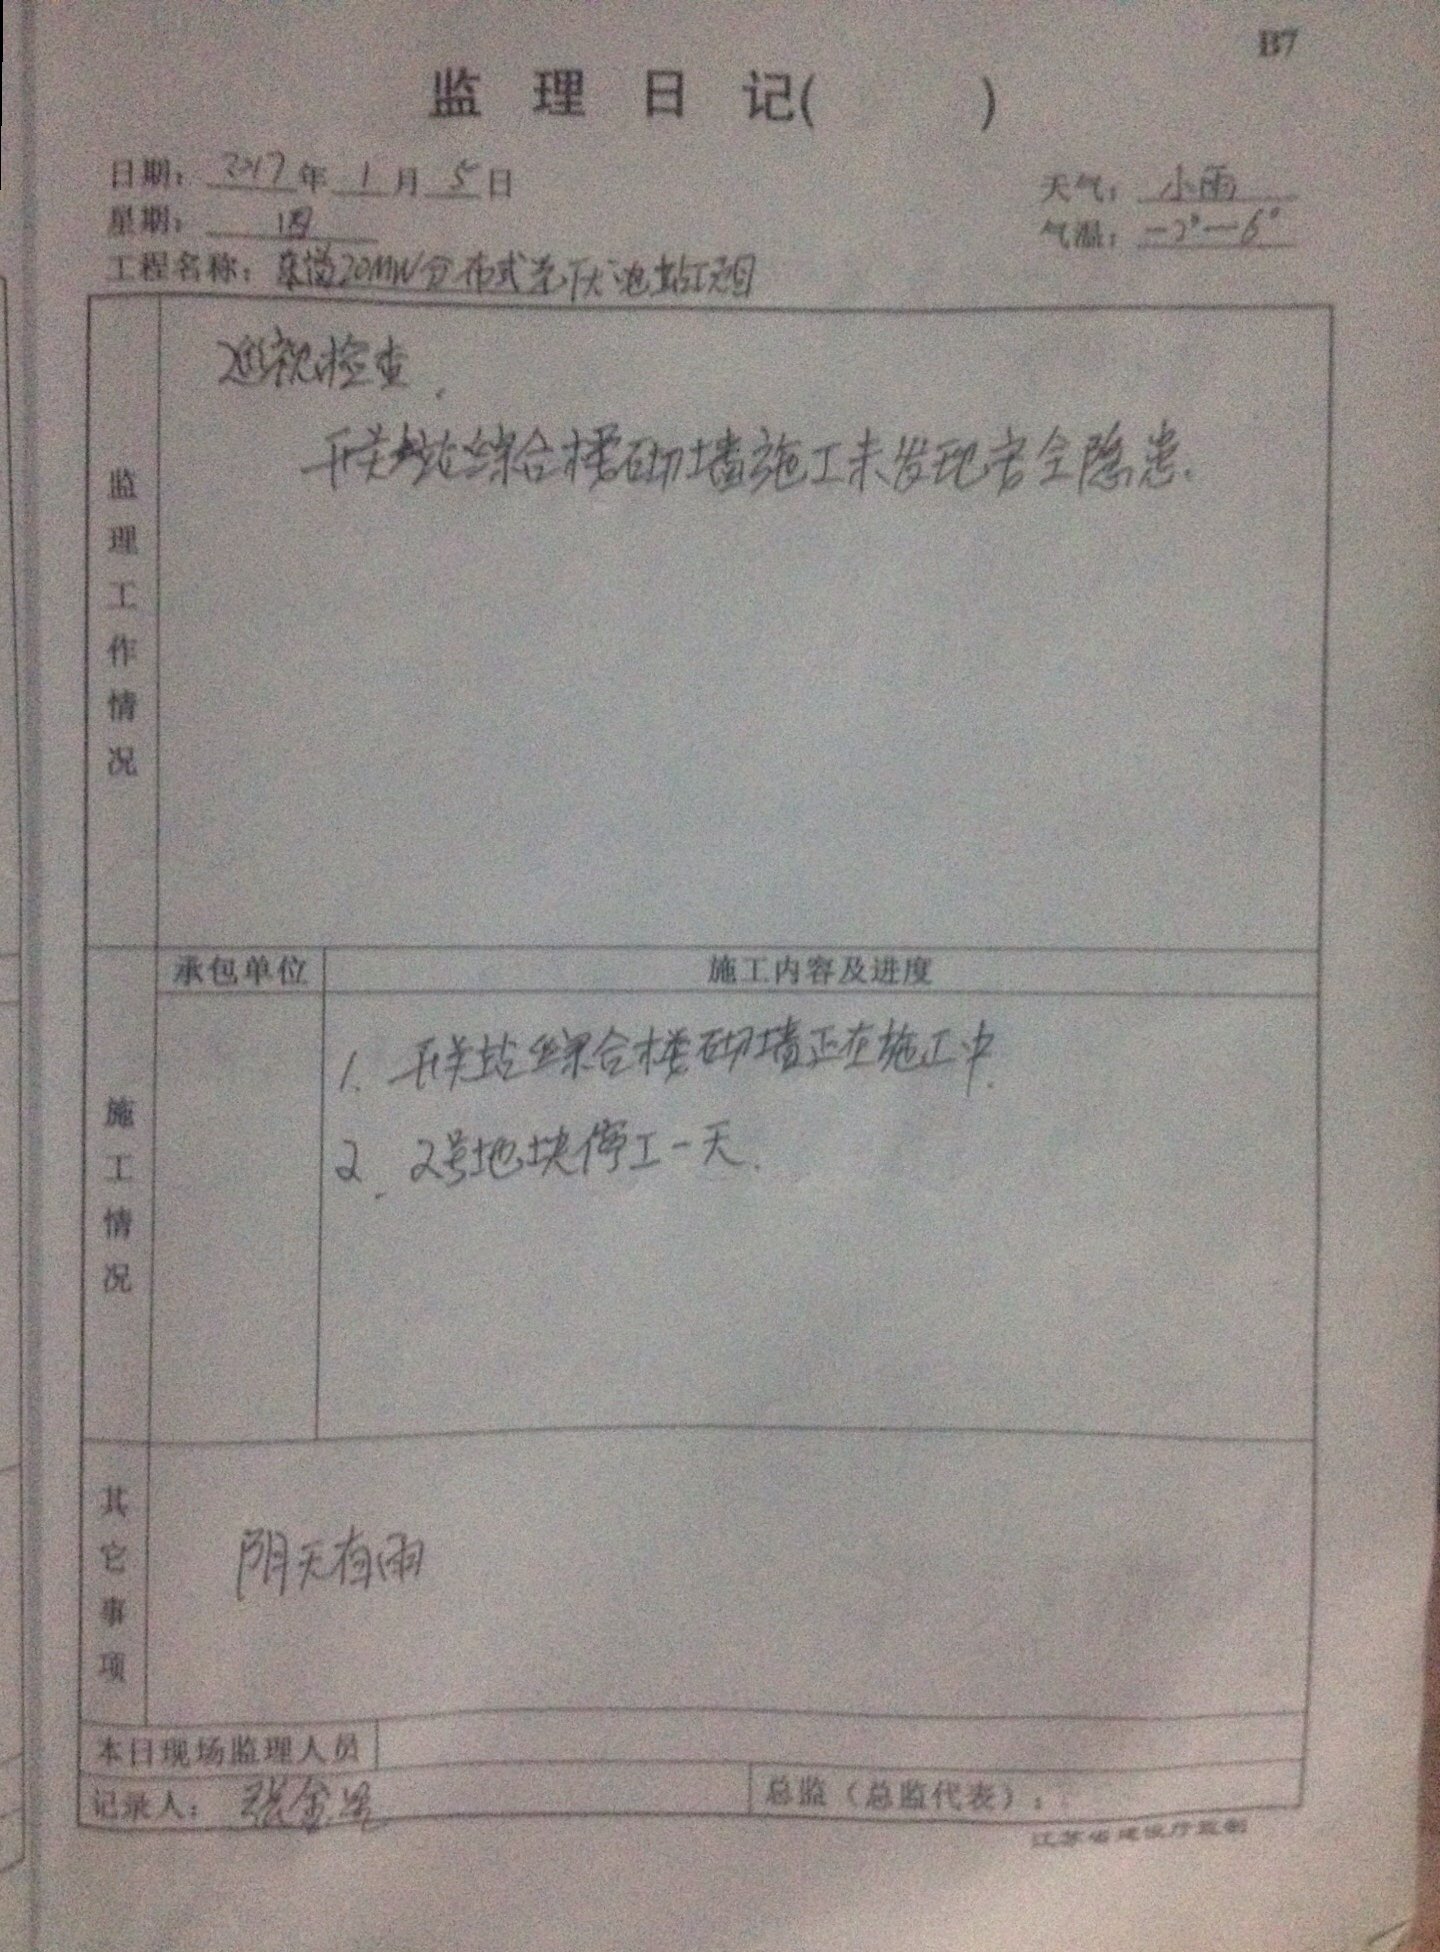 B7
监 理 日 记( )
日期: 2017年 1 月 5 日
天气: 小雨
星期: 四
气温: -2°-6°
工程名称: 20MW分布式光伏电站项目
监理工作情况
巡视检查.
开关站综合楼砌墙施工未发现安全隐患.
承包单位 施工内容及进度
施工情况
1. 开关站综合楼砌墙正在施工中.
2. 2号地块停工一天.
其它事项
阴天有雨
本日现场监理人员
记录人: 张金
总监（总监代表）:
江苏省建设厅监制